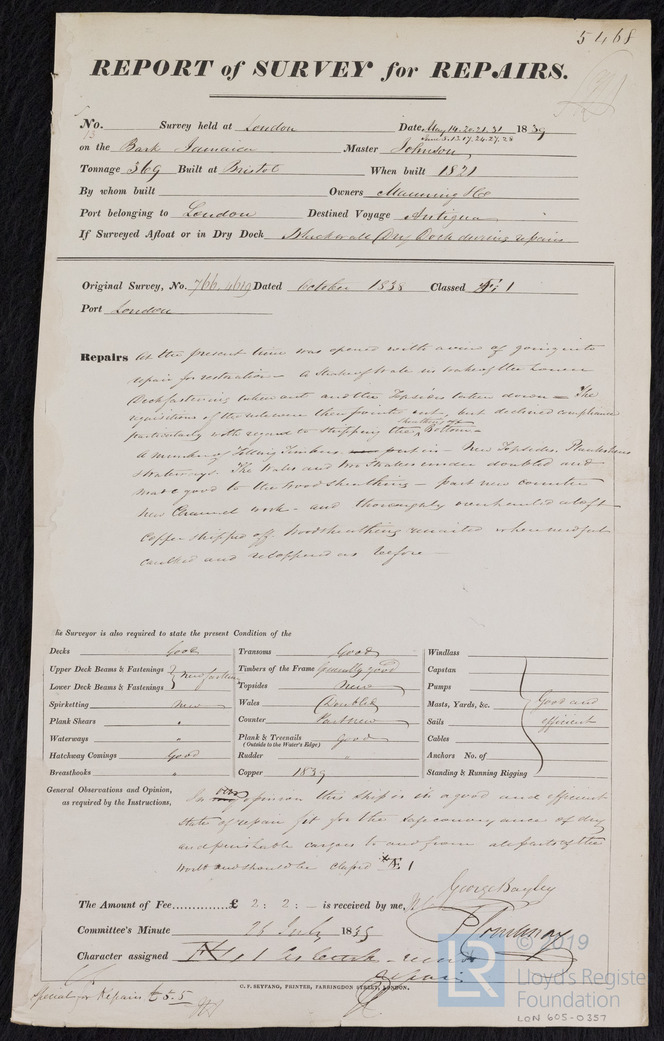 5468
REPORT of SURVEY for REPAIRS.
No. 13 Survey held at London Date May 14. 20. 21. 31 1839
June 5. 13. 17. 24. 27. 28
on the Bark Jamaica Master Johnson
Tonnage 369 Built at Bristol When built 1821
By whom built Owners Manning &Co
Port belonging to London Destined Voyage Antigua
If Surveyed Afloat or in Dry Dock Blackwall Dry Dock during repairs
Original Survey, No. 766. 4619 Dated October 1838 Classed Æ 1
Port London
Repairs at the present time was opened with a view of going into
repair for restoration - A Strake of Wale in wake of the Lower
Deck fastening taken out and the Topsides taken down = The
requisitions of the rules were then pointed out, but declined compliance
particularly with regard to stripping the sheathing off Bottom -
A number of Filling Timbers put in - New Topsides. Plansheers
Waterways. The Wales and two Strakes under doubled and
made good to the Wood Sheathing - part new counter
New Channel work - and thoroughly overhauled aloft
Copper stripped off Wood sheathing renailed where needful
caulked and recoppered as before -
The Surveyor is also required to state the present Condition of the
Decks Good
Upper Deck Beams & Fastenings } New fastenings
Lower Deck Beams & Fastenings
Spirketting New
Plank Shears "
Waterways "
Hatchway Comings Good
Breasthooks "
Transoms Good
Timbers of the Frame Generally good
Topsides New
Wales Doubled
Counter Part new
Plank & Treenails Good
(Outside to the Water's Edge)
Rudder "
Copper 1839
Windlass
Capstan
Pumps
Masts, Yards, &c. Good and
Sails efficient
Cables
Anchors No. of
Standing & Running Rigging
General Observations and Opinion,
as required by the Instructions,
In our opinion this ship is in a good and efficient
state of repair fit for the safe conveyance of dry
and perishable cargoes to and from all parts of the
World and should be classed Æ 1
George Bayley
The Amount of Fee............... £ 2 : 2 : - is received by me,
Committee's Minute 26 July 1839
Character assigned Æ 1
C. F. SEYFANG, PRINTER, FARRINGDON STREET, LONDON.
Special for Repairs £5.5
LR
© 2019
Lloyd's Register
Foundation
LON 605-0357